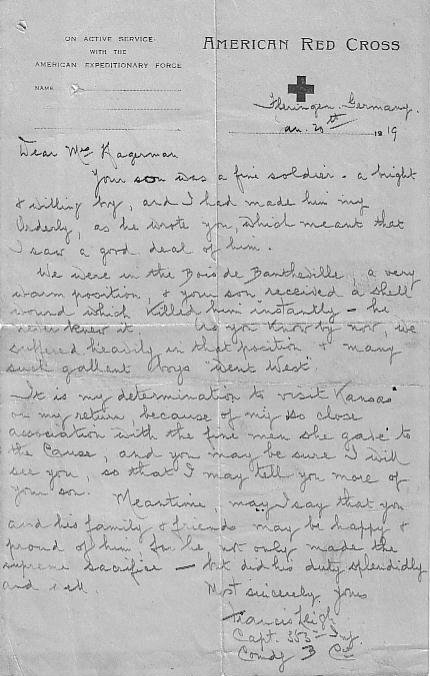 ON ACTIVE SERVICE
WITH THE
AMERICAN EXPEDITIONARY FORCE
AMERICAN RED CROSS
NAME
Germany.
Jan. 20th 1919
Dear Mrs Kagerman
Your son was a fine soldier - a bright
& willing boy, and I had made him my
Orderly, as he wrote you, which meant that
I saw a good deal of him.
We were in the Bois de Bantheville, a very
warm position, & your son received a shell
wound which killed him instantly - he
never knew it As you know by now, we
suffered heavily in that position & many
such gallant boys "went West".
It is my determination to visit Kansas
on my return, because of my so close
association with the fine men she gave to
the Cause, and you may be sure I will
see you, so that I may tell you more of
your son. Meantime, may I say that you
and his family & friends may be happy &
proud of him, for he, not only made the
supreme sacrifice - but did his duty splendidly
and well.
Most sincerely yours
Francis Leigh
Capt. 353rd Inf.
Comdg B Co